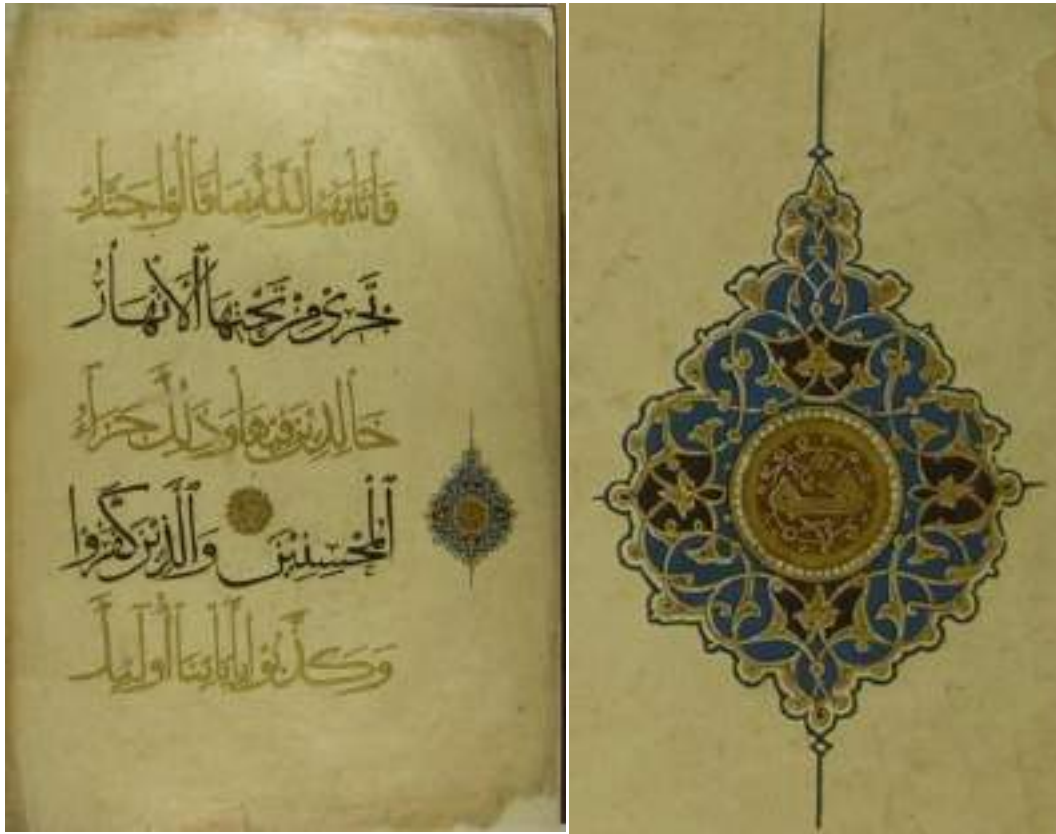 فَأَثَابَهُمُ اللَّهُ بِمَا قَالُوا جَنَّاتٍ
تَجْرِي مِنْ تَحْتِهَا الْأَنْهَارُ
خَالِدِينَ فِيهَا وَذَلِكَ جَزَاءُ
الْمُحْسِنِينَ وَالَّذِينَ كَفَرُوا
وَكَذَّبُوا بِآيَاتِنَا أُولَئِكَ